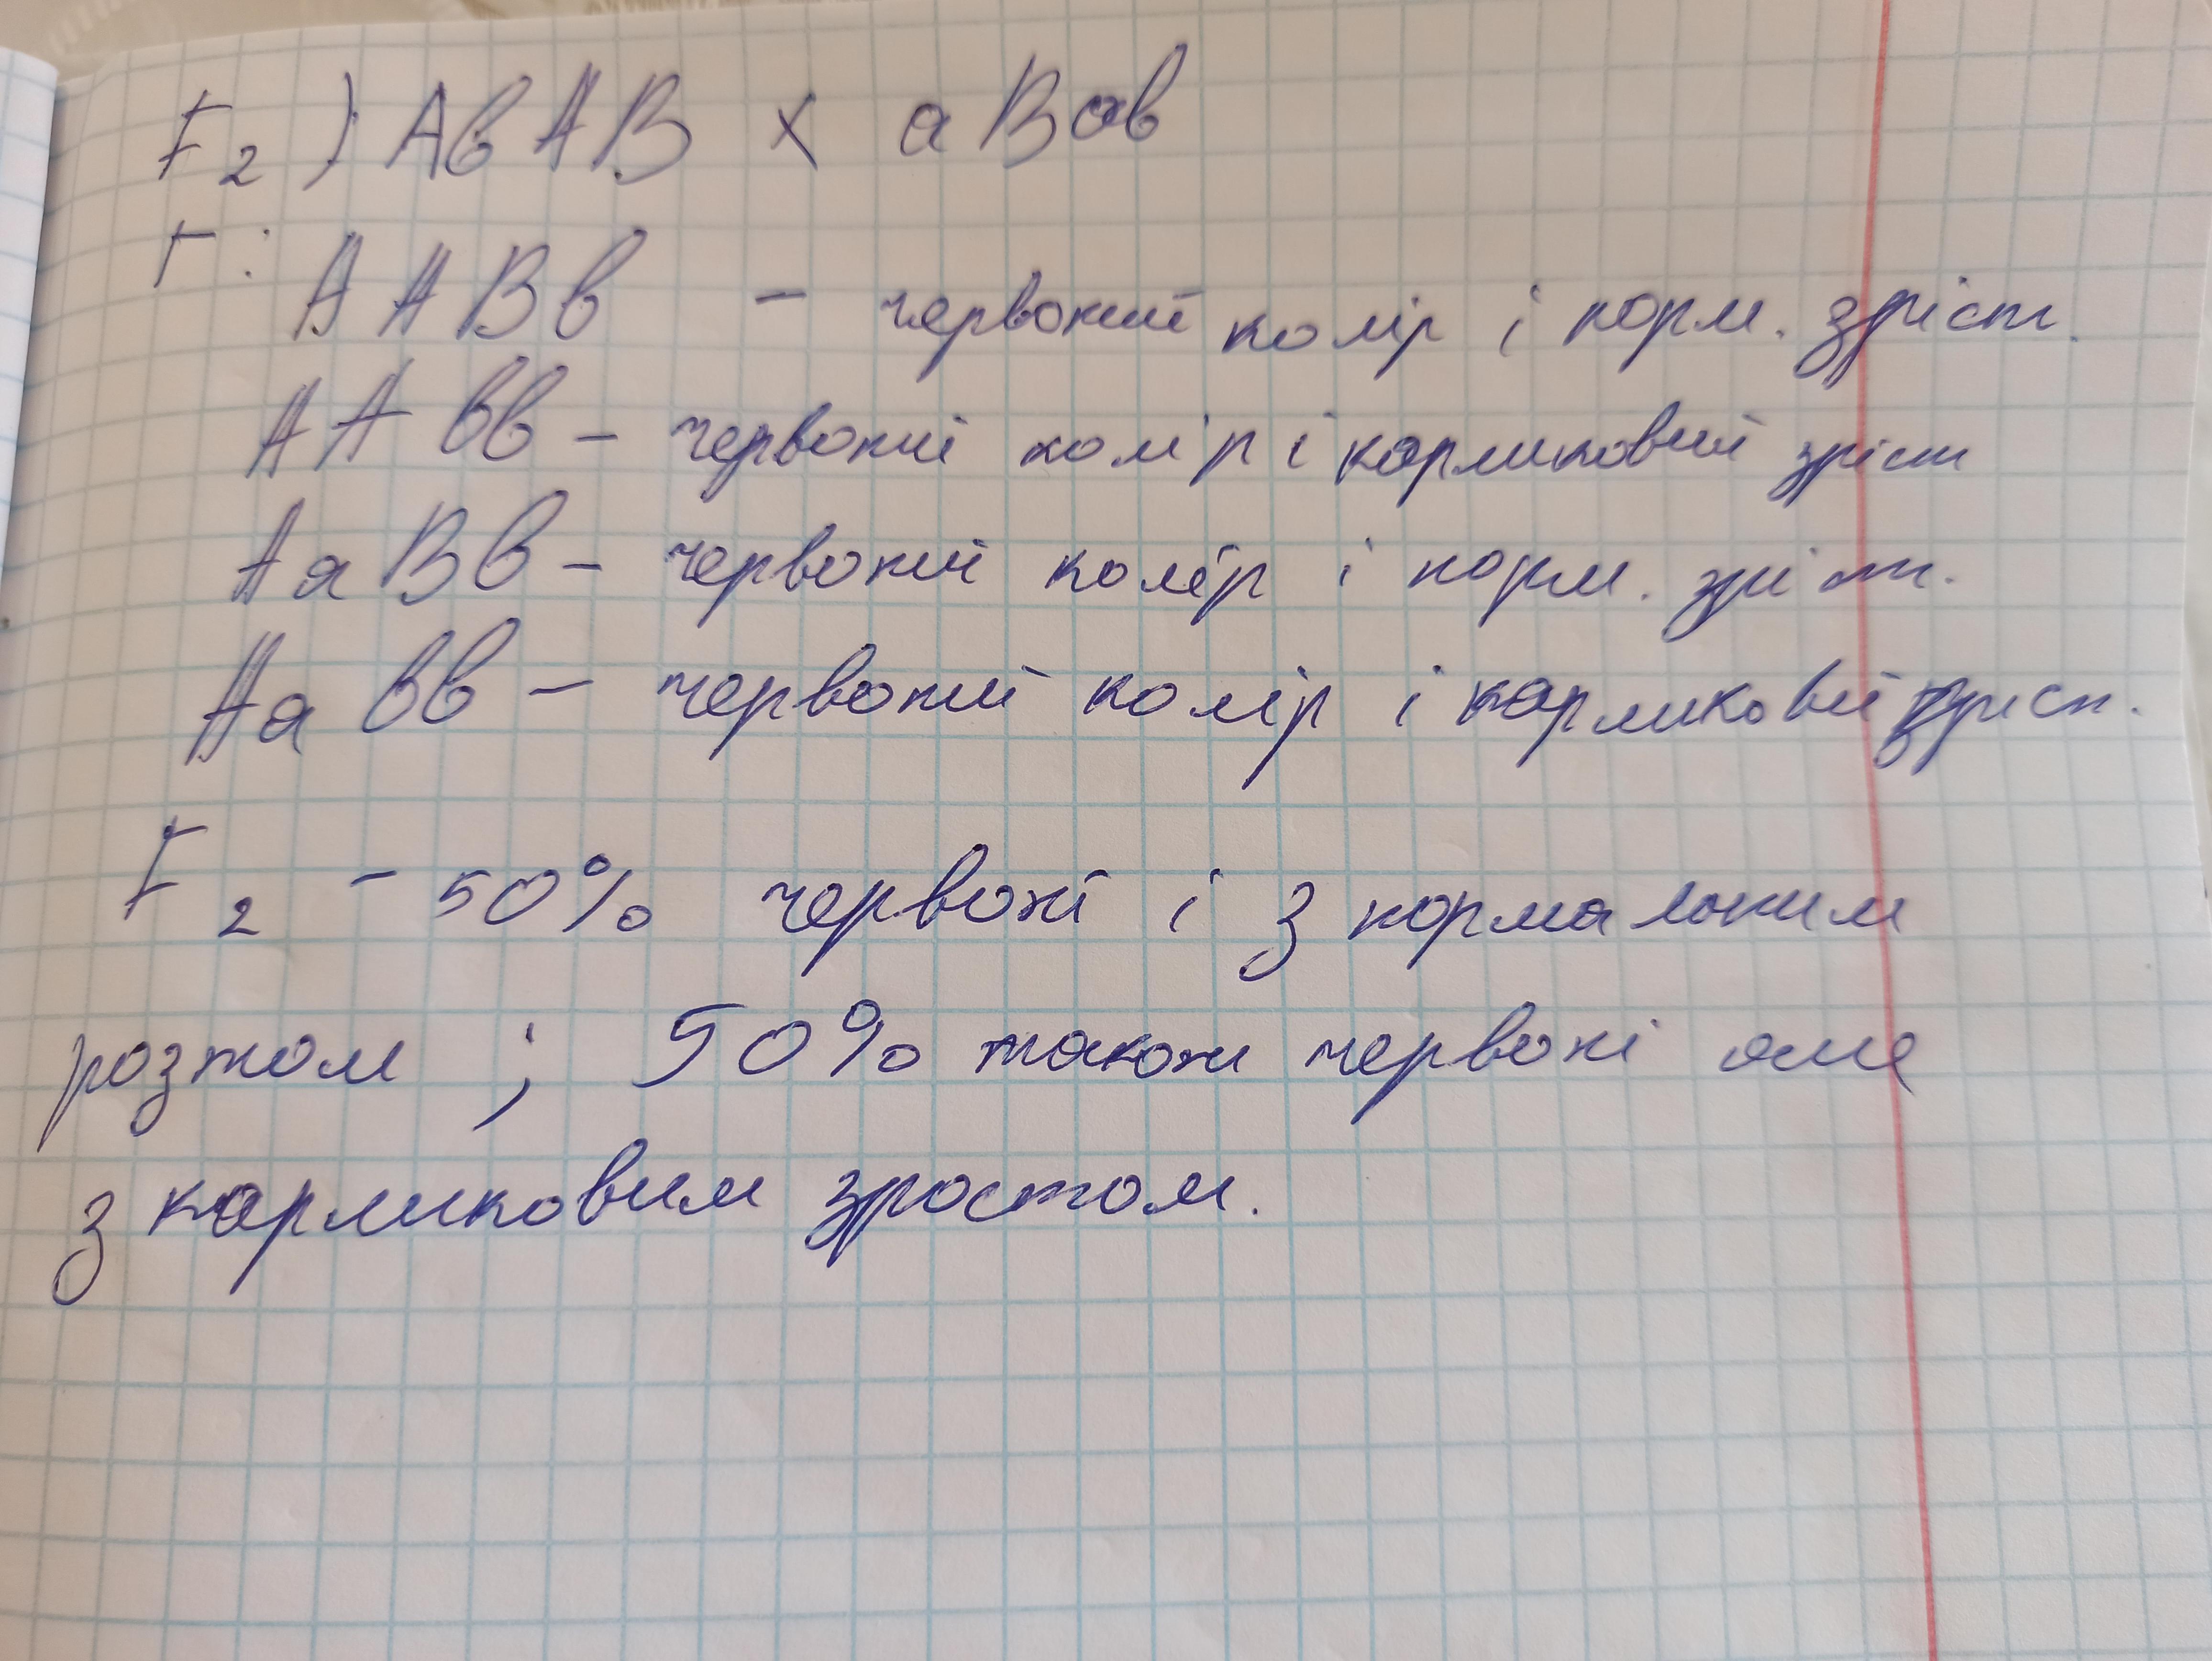 F₂) АвАВ х аВав
Г:
ААВв – червоний колір і норм. зріст.
ААвв – червоний колір і карликовий зріст
АаВв – червоний колір і норм. зріст.
Аавв – червоний колір і карликовий зріст.
F₂ – 50% червоні і з нормальним
розтом ; 50% також червоні але
з карликовим зростом.